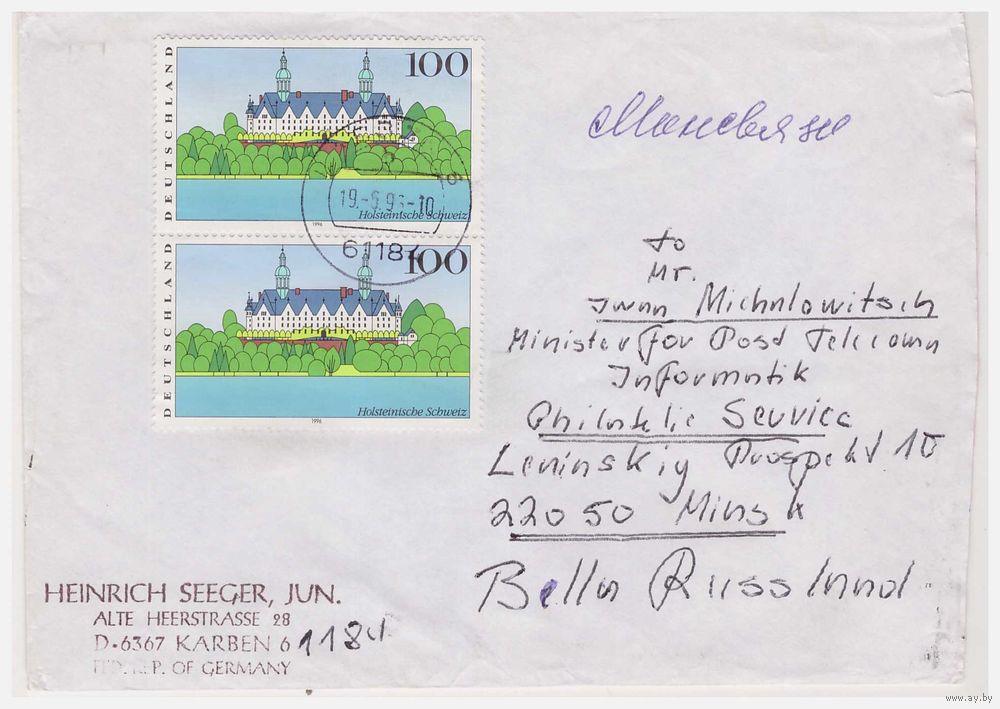 DEUTSCHLAND
100
Holsteinische Schweiz
1996
DEUTSCHLAND
100
Holsteinische Schweiz
1996
61184
to
Mr.
Iwan Michalowitsch
Minister for Post Telecomn
Informatik
Philatelie Service
Leninskiy Prospekt 10
22050 Minsk
Bella Russland
HEINRICH SEEGER, JUN.
ALTE HEERSTRASSE 28
D-6367 KARBEN 61184
REP. OF GERMANY
www.ay.by